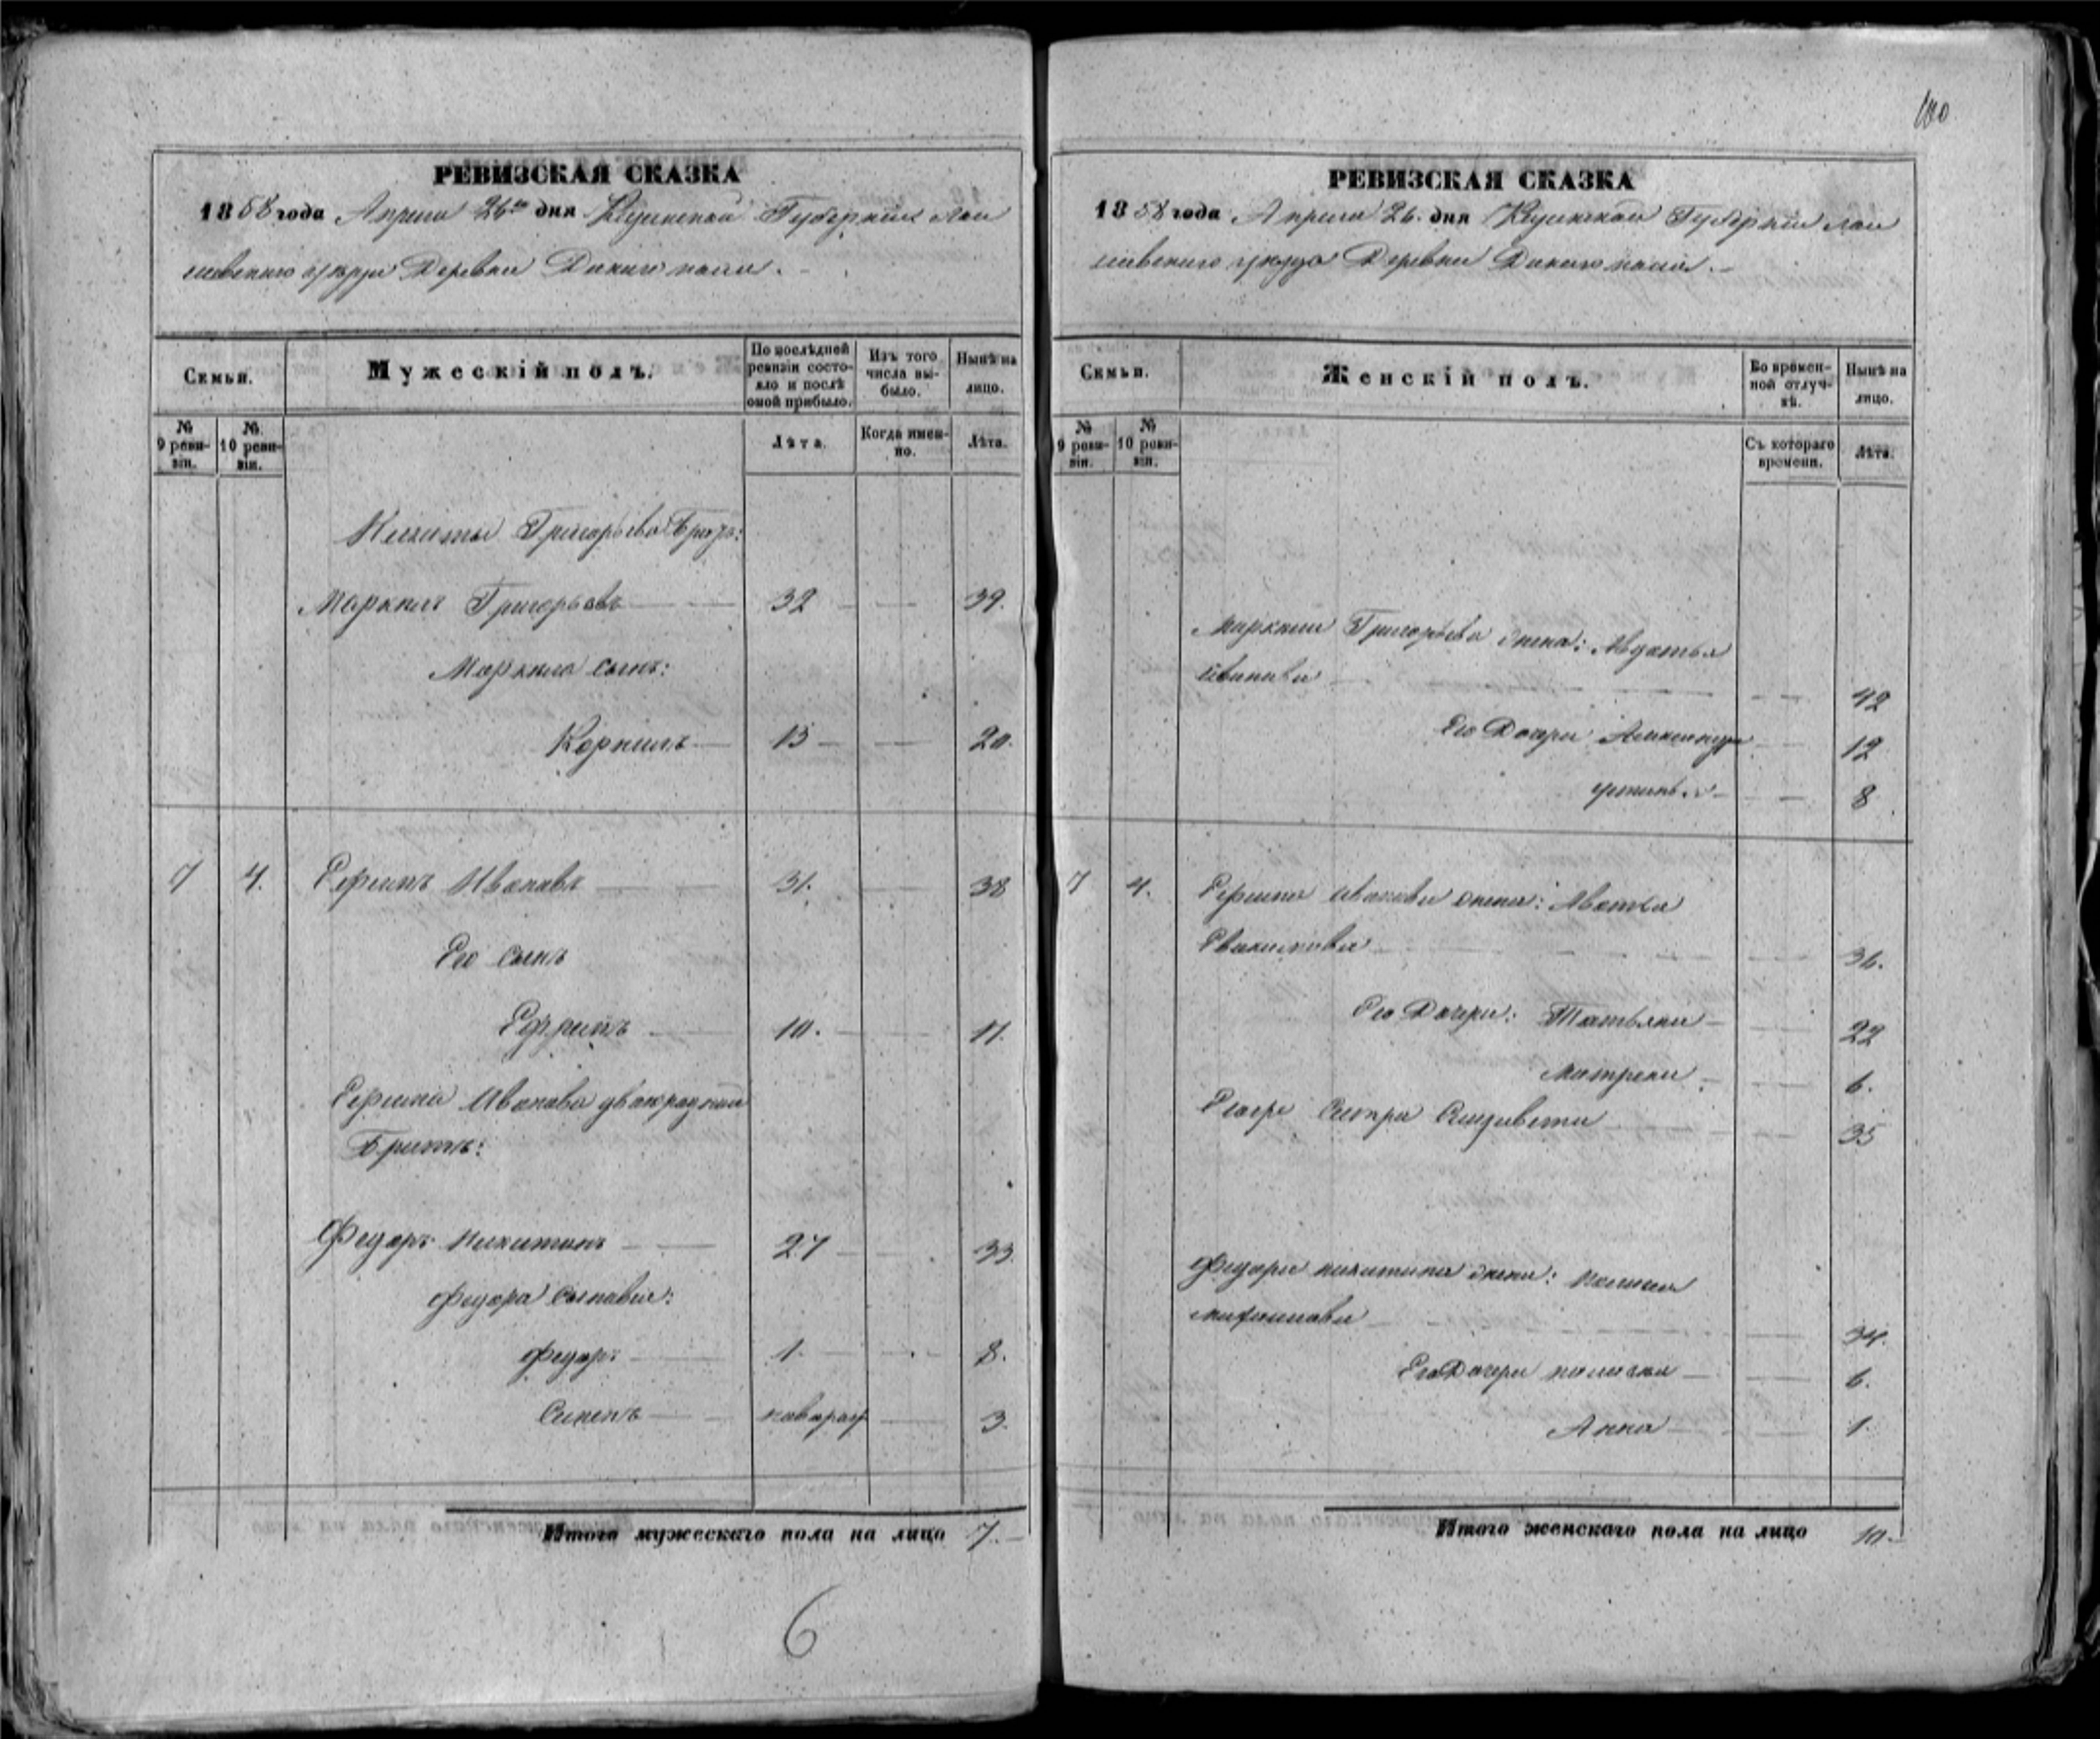 РЕВИЗСКАЯ СКАЗКА
1858 года Апреля 26го дня Казанской Губернии Лаи
шевскаго уезда Деревни
Семьи.
Мужескій полъ.
По послѣдней ревизіи состояло и послѣ оной прибыло.
Изъ того числа выбыло.
Нынѣ на лицо.
№ 9 ревизіи.
№ 10 ревизіи.
Лѣта.
Когда именно.
Лѣта.
Никиты Григорьева братъ:
Маркилъ Григорьевъ 32 39.
Маркила сынъ:
Корнилъ 13 20.
7 4. Ефимъ Ивановъ 31. 38
Его сынъ
10. 11.
Ефима Иванова двоюродный
Братъ:
Федоръ Никитинъ 27 33.
Федора сыновья:
Федоръ 1. 8.
Семенъ новорож 3.
Итого мужескаго пола на лицо 7.
6
100
РЕВИЗСКАЯ СКАЗКА
1858 года Апреля 26. дня Казанской Губерніи Лаи
шевскаго уезда Деревни
Семьи.
Женскій полъ.
Во временной отлучкѣ.
Нынѣ на лицо.
№ 9 ревизіи.
№ 10 ревизіи.
Съ котораго времени.
Лѣта.
Маркила Григорьева жена: Авдотья
Иванова 42
Его Дочери Александра 12
Устинья 8
7 4. Ефима Иванова жена:
36.
Его Дочери: Татьяна 22
Матрена 6.
Сестра Елизавета 35
Федора Никитина жена:
34.
Его Дочери 6.
Анна 1.
Итого женскаго пола на лицо 10.